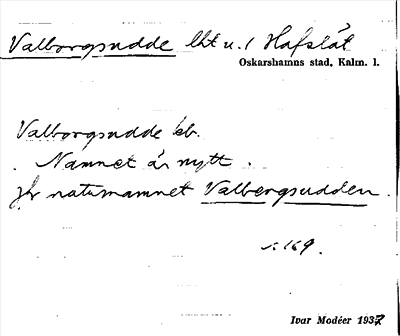 Valborgsudde lht u. / Hafslät
Oskarshamns stad, Kalm. l.
Valborgsudde kb.
Namnet är nytt.
jfr naturnamnet Valbergsudden.
s. 169.
Ivar Modéer 1937